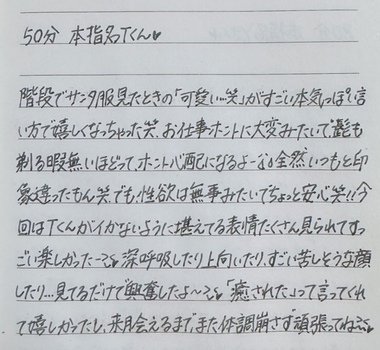 50分 本指名Tくん♥
階段でサンタ服見たときの「可愛い…笑」がすごい本気っぽい言
い方で嬉しくなっちゃった笑 お仕事ホントに大変みたいで髭も
剃る暇無いほどって、ホント心配になるよー 全然いつもと印
象違ったもん笑 でも、性欲は無事みたいでちょっと安心笑!!今
回はTくんがイかないように堪えてる表情たくさん見られてすっ
ごい楽しかった〜 深呼吸したり上向いたり、すごい苦しそうな顔
したり…見てるだけで興奮したよ〜 「癒された」って言ってくれ
て嬉しかったし、来月会えるまで、また体調崩さず頑張ってね